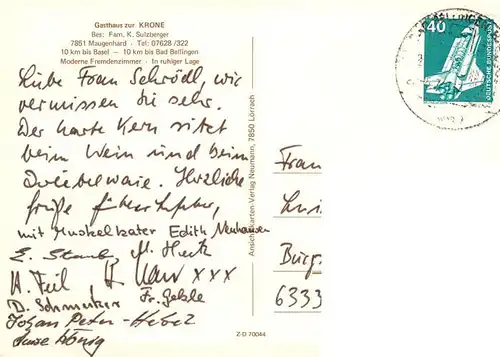 Gasthaus zur KRONE
Bes: Fam. K. Sulzberger
7851 Maugenhard · Tel: 07628/322
10 km bis Basel — 10 km bis Bad Bellingen
Moderne Fremdenzimmer · In ruhiger Lage
Liebe Frau Schrödl, wir
vermissen Sie sehr.
Der harte Kern sitzt
beim Wein und beim
Zwiebelwaie. Herzliche
Grüße
mit Muskelkater Edith Neuhauser
H. Feil, H. xxx
D. Schmutzer Fr.
Johann Peter Hebel
Ansichtskarten-Verlag Neumann, 7850 Lörrach
Z-D 70044
40
DEUTSCHE BUNDESPOST
BELLINGEN
Frau
Burg
6333